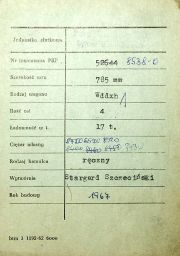 Jednostka zbiorowa
Nr inwentarza PKP 52644 8538-0
Szerokość toru 785 mm
Rodzaj wagonu Wddxh 1
Ilość osi 4
Ładowność w t. 17 t.
Ciężar własny
Rodzaj hamulca ręczny
Wytwórnia Stargard Szczeciński
Rok budowy 1967